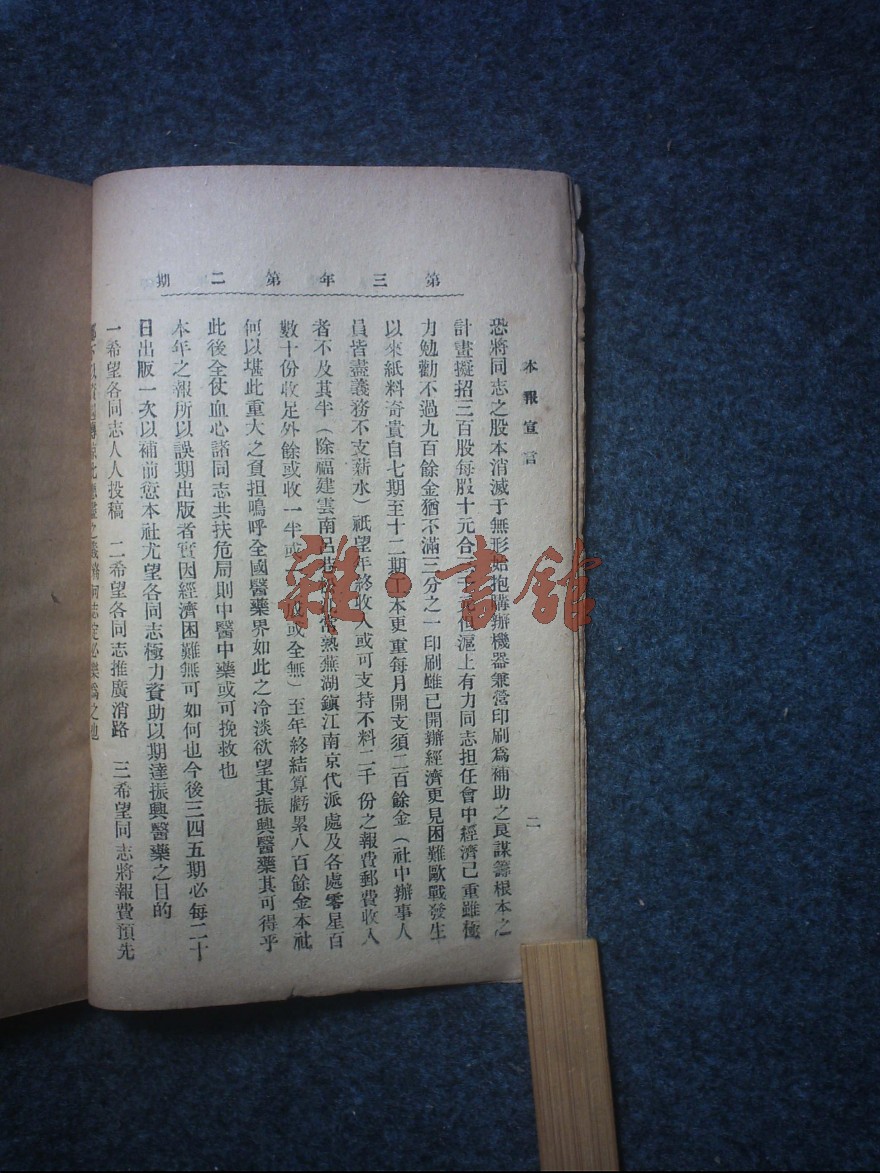 第三年第二期
本報宣言
二
恐將同志之股本消滅于無形始抱購辦機器兼營印刷爲補助之良謀籌根本之
計畫擬招三百股每股十元合三千元但滬上有力同志担任會中經濟已重雖極
力勉勸不過九百餘金猶不滿三分之一印刷雖已開辦經濟更見困難歐戰發生
以來紙料奇貴自七期至十二期工本更重每月開支須二百餘金（社中辦事人
員皆盡義務不支薪水）祇望年終收入或可支持不料二千份之報費郵費收入
者不及其半（除福建雲南呂巷 常熟蕪湖鎭江南京代派處及各處零星百
數十份收足外餘或收一半或 或全無）至年終結算虧累八百餘金本社
何以堪此重大之負担嗚呼全國醫藥界如此之冷淡欲望其振興醫藥其可得乎
此後全仗血心諸同志共扶危局則中醫中藥或可挽救也
本年之報所以誤期出版者實因經濟困難無可如何也今後三四五期必每二十
日出版一次以補前愆本社尤望各同志極力資助以期達振興醫藥之目的
一希望各同志人人投稿 二希望各同志推廣消路 三希望同志將報費預先
之 同志定必樂爲之也
雜·書館